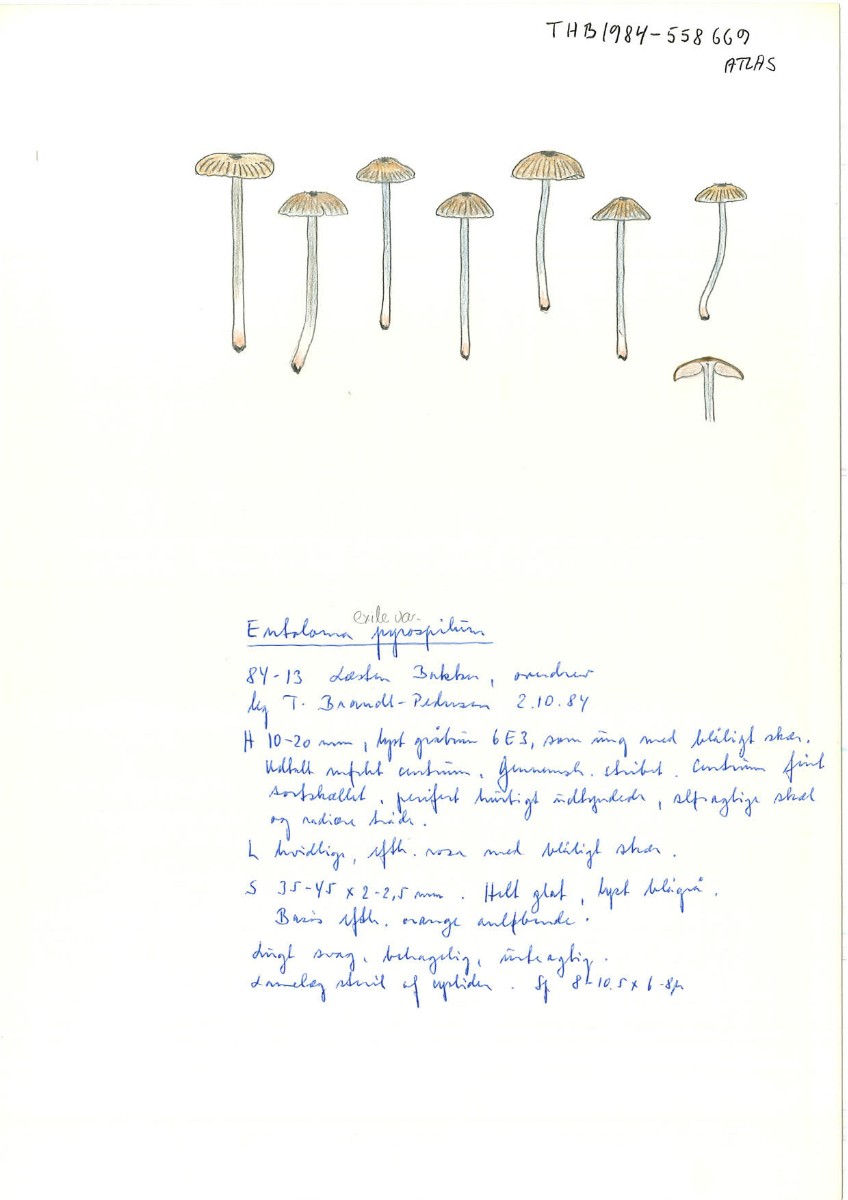 THB1984-558669
ATLAS
exile var.
Entoloma pyrospilum
84-13 Læsten Bakker, overdrev
leg T. Brandt-Pedersen 2.10.84
H 10-20 mm, lyst gråbrun 6E3, som ung med blåligt skær.
Udtalt mørkt centrum. Gennemsk. stribet. Centrum fint
sortskællet, perifert hurtigt udtyndede, skæl
og radiære tråde.
L hvidlige, efth. rosa med blåligt skær.
S 35-45 x 2-2,5 mm. Helt glat, lyst blågrå.
Basis efth. orange anløbende.
Lugt svag, behagelig, urteagtig.
Lamelæg steril af cystider. Sp 8-10.5 x 6-8µ